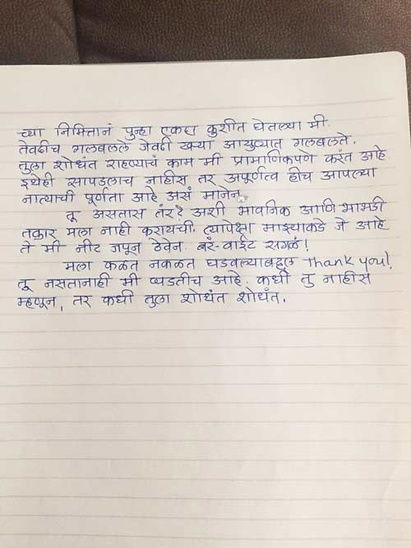 च्या निमित्तानं पुन्हा एकदा कुशीत घेतल्या मी.
तेवढीच गलबलले जेवढी खऱ्या आयुष्यात गलबलते.
तुला शोधंत राहण्याचं काम मी प्रामाणिकपणे करंत आहे
इथेही सापडलाच नाहीस तर अपूर्णत्व हीच आपल्या
नात्याची पूर्णता आहे असं मानेन.
तू असतास तंर? अशी भावनिक आणि भाबडी
तक्रार मला नाही करायची. त्यापेक्षा माझ्याकडे जे आहे
ते मी नीट जपून ठेवेन. बरं-वाईट सगळं!
मला कळत नकळत घडवल्याबद्दल Thank you!
तू नसतानाही मी घडतीच आहे. कधी तु नाहीस
म्हणून, तर कधी तुला शोधंत शोधंत.